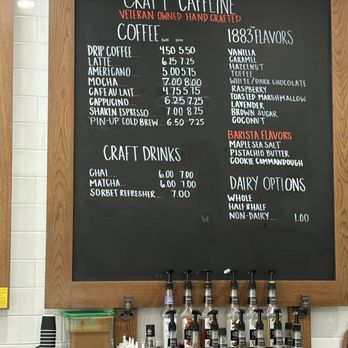 CRAFT CAFFEINE
VETERAN OWNED HAND CRAFTED
COFFEE
DRIP COFFEE 4.50 5.50
LATTE 6.25 7.25
AMERICANO 5.00 5.75
MOCHA 7.00 8.00
CAFE AU LAIT 4.75 5.75
CAPPUCINO 6.25 7.25
SHAKEN ESPRESSO 7.00 8.75
PIN-UP COLD BREW 6.50 7.25
CRAFT DRINKS
CHAI 6.00 7.00
MATCHA 6.00 7.00
SORBET REFRESHER 7.00
1883 FLAVORS
VANILLA
CARAMEL
HAZELNUT
TOFFEE
WHITE/DARK CHOCOLATE
RASPBERRY
TOASTED MARSHMALLOW
LAVENDER
BROWN SUGAR
COCONUT
BARISTA FLAVORS
MAPLE SEA SALT
PISTACHIO BUTTER
COOKIE COMMANDOUGH
DAIRY OPTIONS
WHOLE
HALF & HALF
NON-DAIRY 1.00